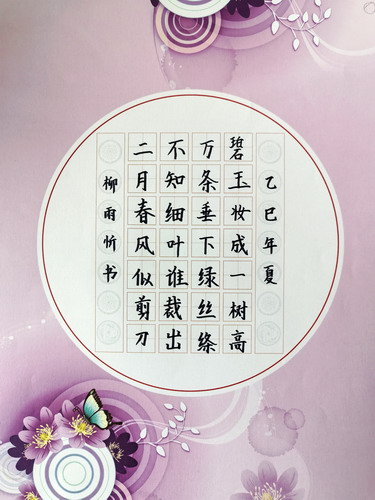 乙巳年夏
碧玉妆成一树高
万条垂下绿丝绦
不知细叶谁裁出
二月春风似剪刀
柳雨忻书